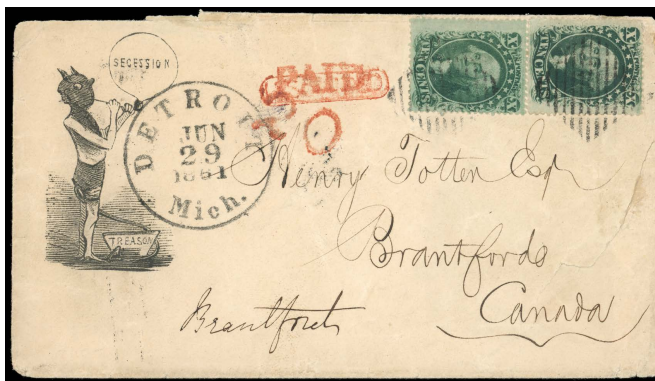 SECESSION
TREASON
DETROIT
JUN
29
1861
Mich.
PAID
20
TEN CENTS
TEN CENTS
Henry Totten Esqr
Brantford
Canada
Brantford